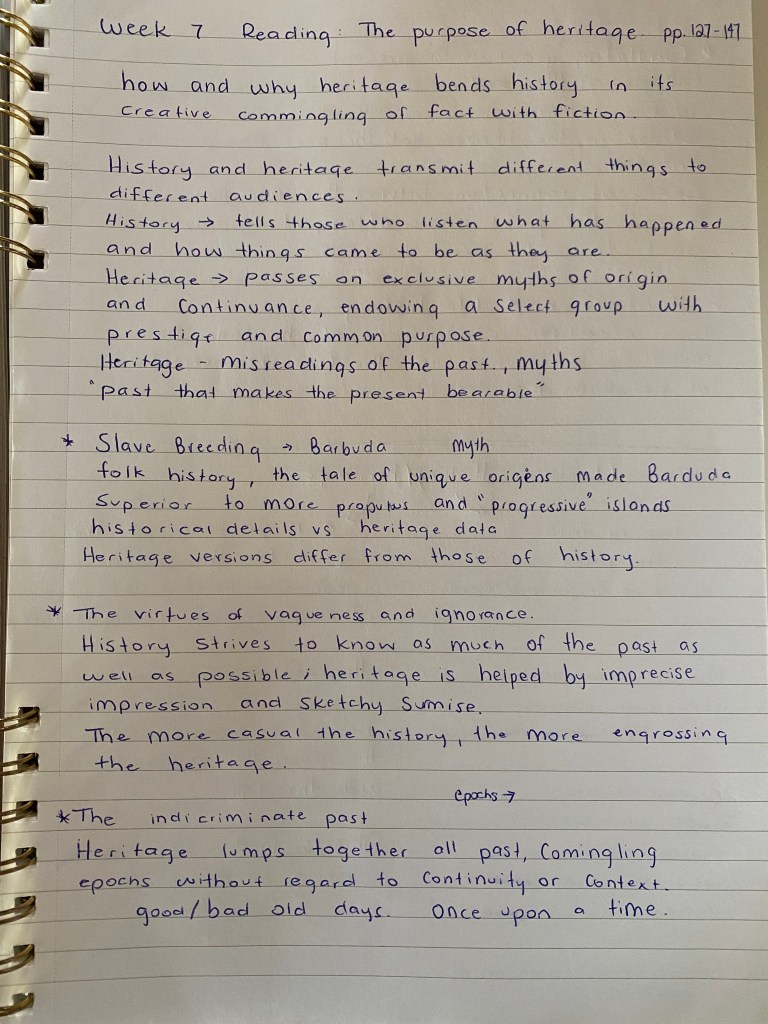 Week 7 Reading: The purpose of heritage. pp. 127-147
how and why heritage bends history in its
creative commingling of fact with fiction.
History and heritage transmit different things to
different audiences.
History → tells those who listen what has happened
and how things came to be as they are.
Heritage → passes on exclusive myths of origin
and continuance, endowing a select group with
prestige and common purpose.
Heritage - misreadings of the past., myths
"past that makes the present bearable"
* Slave Breeding → Barbuda myth
folk history, the tale of unique origens made Barduda
superior to more and "progressive" islands
historical details vs heritage data
Heritage versions differ from those of history.
* The virtues of vagueness and ignorance.
History strives to know as much of the past as
well as possible; heritage is helped by imprecise
impression and sketchy sumise.
The more casual the history, the more engrossing
the heritage.
epochs →
* The indicriminate past
Heritage lumps together all past, comingling
epochs without regard to continuity or context.
good/bad old days. Once upon a time.